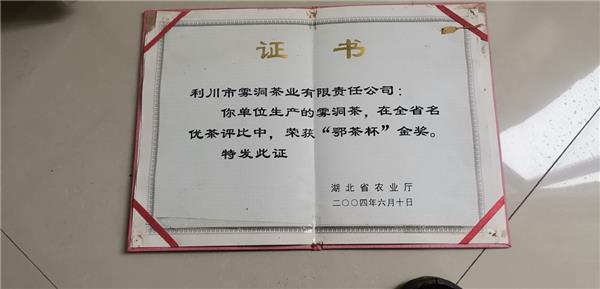 证书
利川市雾洞茶业有限责任公司：
你单位生产的雾洞茶，在全省名
优茶评比中，荣获“鄂茶杯”金奖。
特发此证
湖北省农业厅
二〇〇四年六月十日